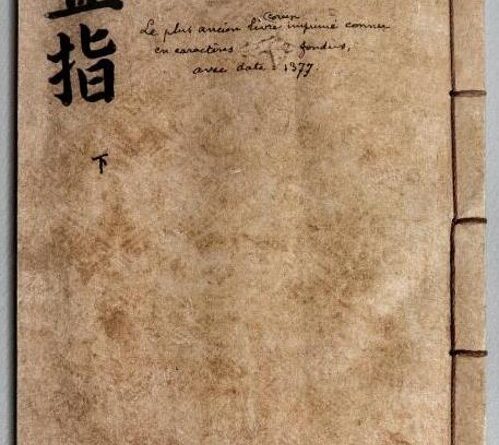 指
下
Coréen
Le plus ancien livre imprimé connu
en caractères fondus,
avec date : 1377.